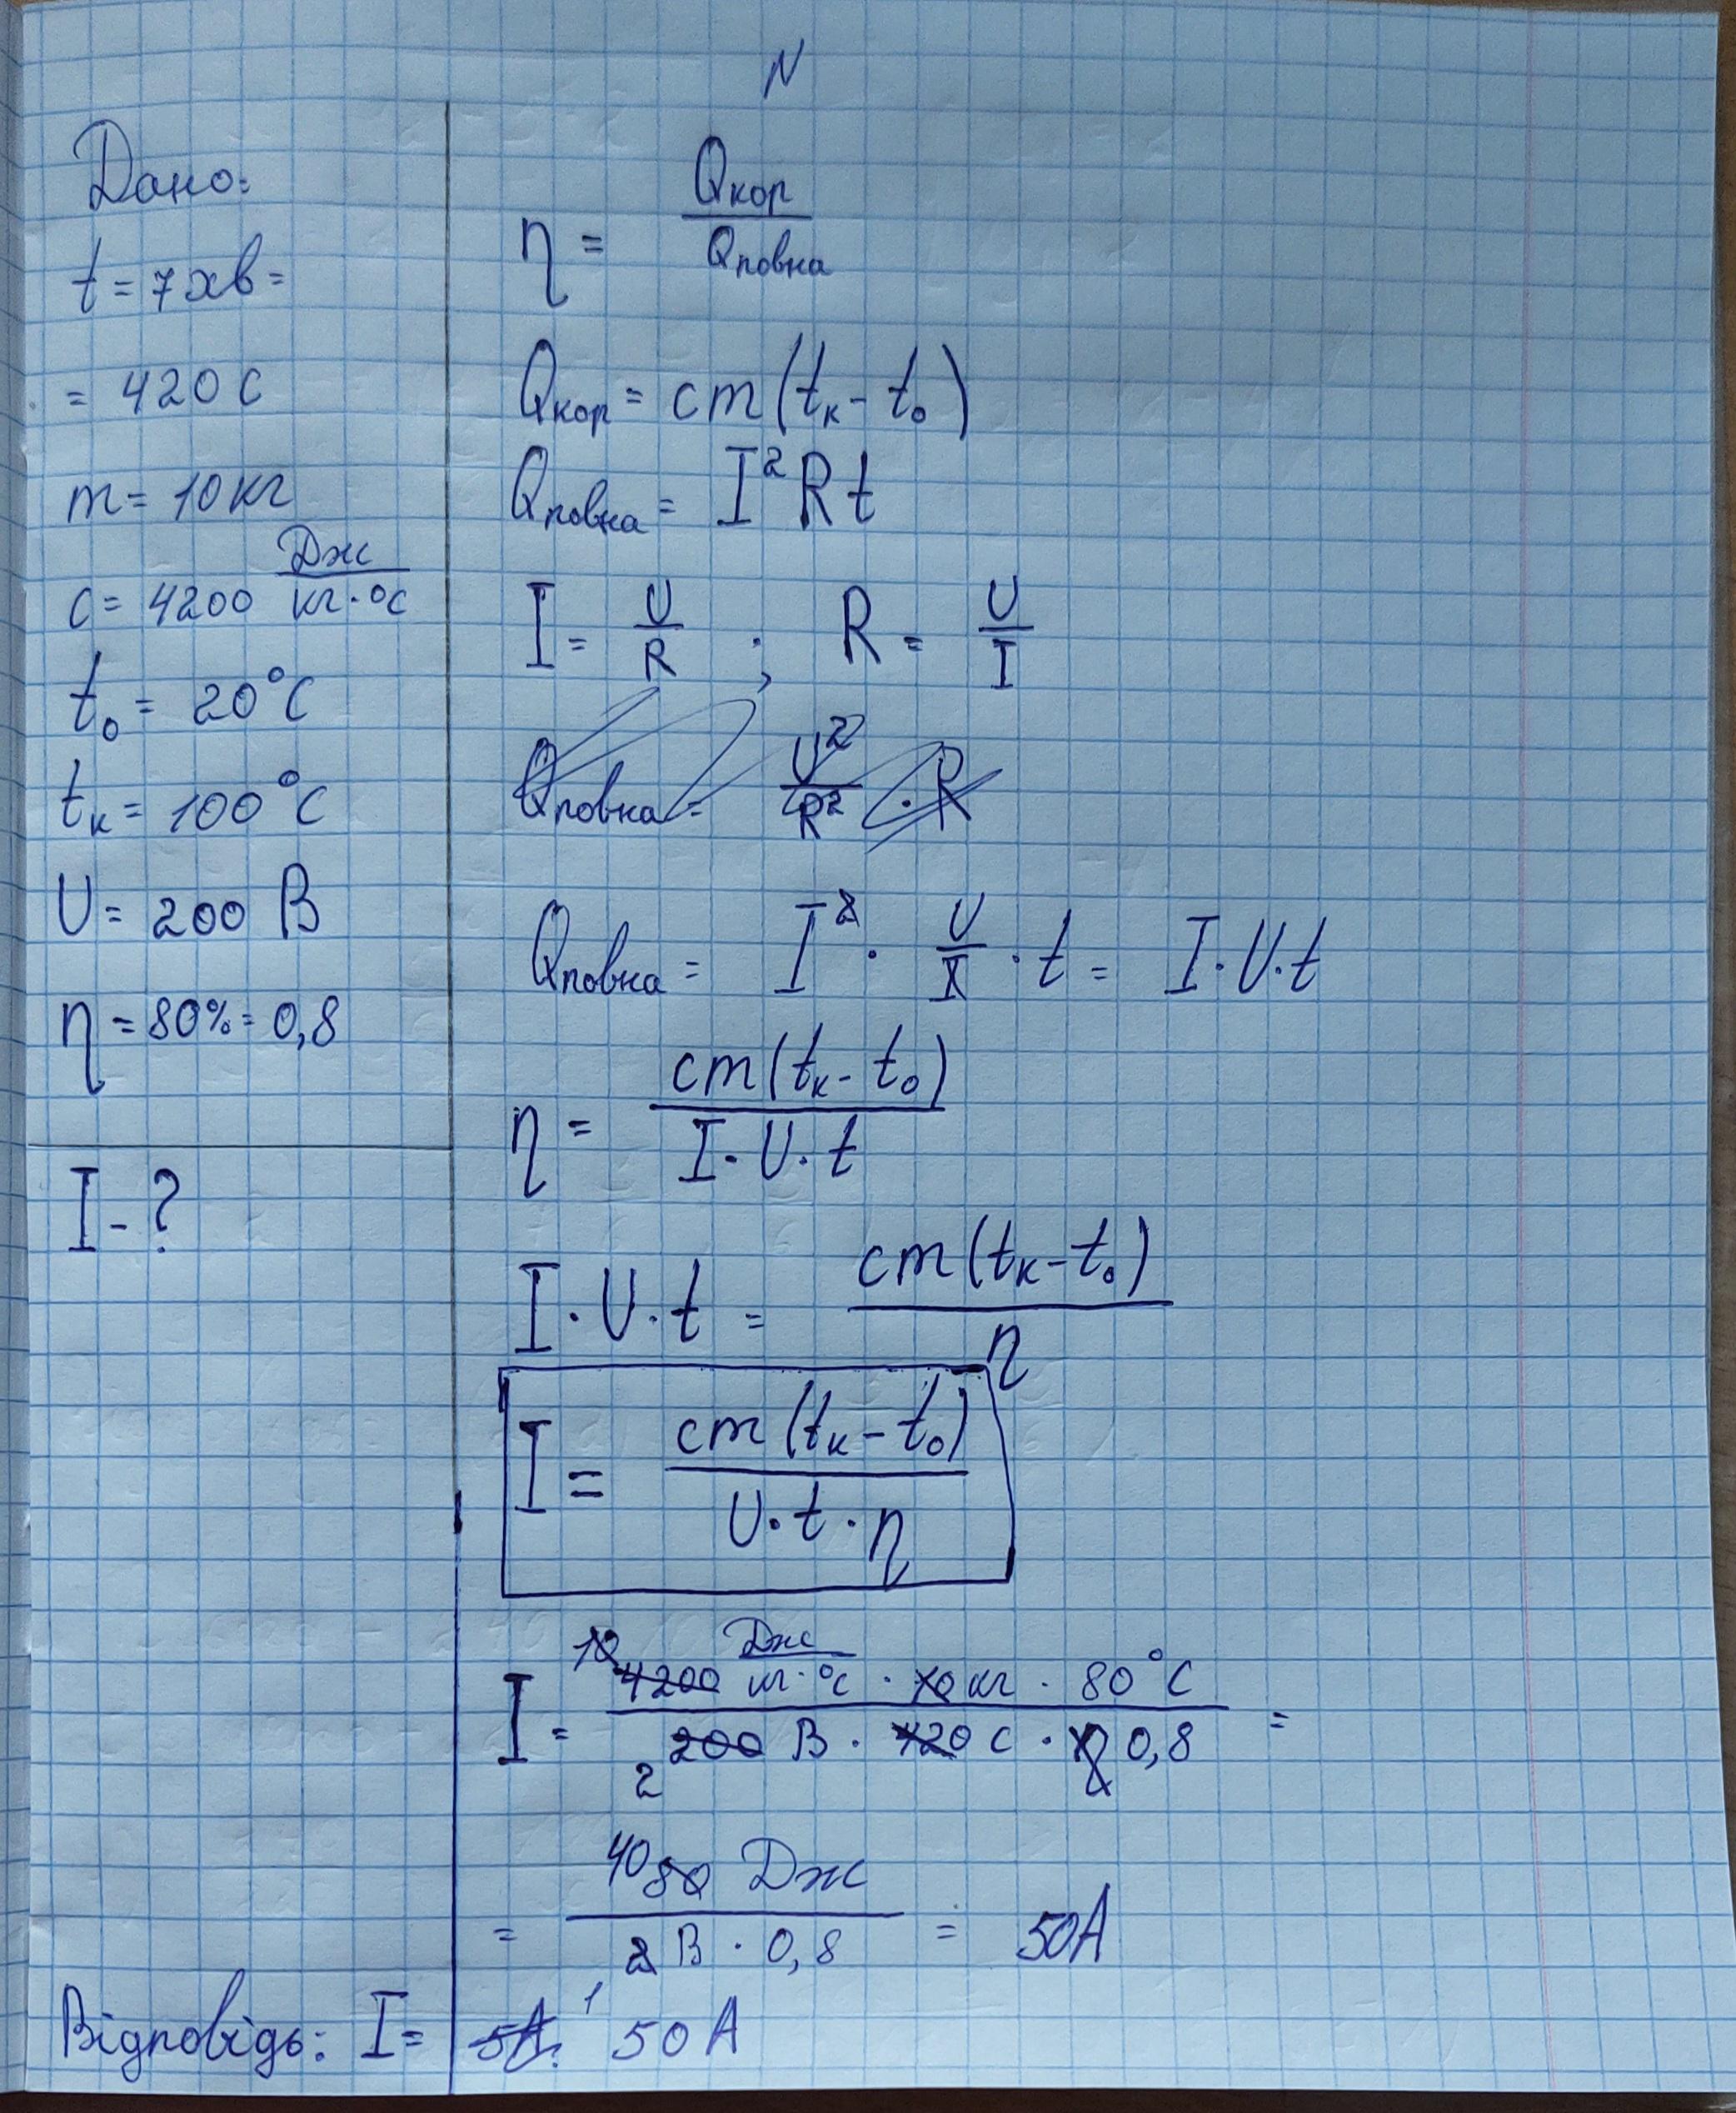 N
Дано:
t = 7 хв =
= 420 с
m = 10 кг
c = 4200 Дж/кг·°С
t₀ = 20°С
tк = 100°С
U = 200 В
η = 80% = 0,8
I - ?
η = Qкор/Qповна
Qкор = cm(tк - t₀)
Qповна = I²Rt
I = U/R ; R = U/I
Qповна = U²/R² · R
Qповна = I² · U/I · t = I·U·t
η = cm(tк - t₀)/I·U·t
I·U·t = cm(tк - t₀)/η
I = cm(tк - t₀)/U·t·η
I = 10 4200 Дж/кг·°С · 10 кг · 80°С / 2 200 В · 420 с · 0,8 =
= 40 80 Дж / 2 В · 0,8 = 50А
1
Відповідь: I = 5А. 50 А